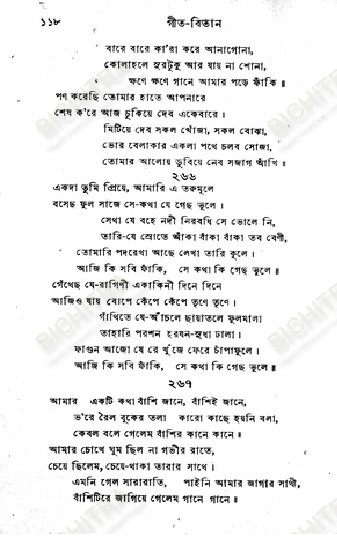 ১১৮ গীত-বিতান
বারে বারে কা'রা করে আনাগোনা,
কোলাহলে সুরটুকু আর যায় না শোনা,
ক্ষণে ক্ষণে গানে আমার পড়ে ফাঁকি॥
পণ করেছি তোমার হাতে আপনারে
শেষ ক'রে আজ চুকিয়ে দেব একেবারে।
মিটিয়ে দেব সকল খোঁজা, সকল বোঝা,
ভোর বেলাকার একলা পথে চলব সোজা,
তোমার আলোয় ডুবিয়ে নেব সজাগ আঁখি।
২৬৬
একদা তুমি প্রিয়ে, আমারি এ তরুমূলে
বসেছ ফুল সাজে সে-কথা যে গেছ ভুলে।
সেথা যে বহে নদী নিরবধি সে ভোলে নি,
তারি-যে স্রোতে আঁকা বাঁকা বাঁকা তব বেণী,
তোমারি পদরেখা আছে লেখা তারি কূলে।
আজি কি সবি ফাঁকি, সে কথা কি গেছ ভুলে॥
গেঁথেছ যে-রাগিণী একাকিনী দিনে দিনে
আজিও যায় ব্যেপে কেঁপে কেঁপে তৃণে তৃণে।
গাঁথিতে যে-আঁচলে ছায়াতলে ফুলমালা
তাহারি পরশন হরষন-সুধা ঢালা।
ফাগুন আজো যে রে খুঁজে ফেরে চাঁপাফুলে।
আজি কি সবি ফাঁকি, সে কথা কি গেছ ভুলে॥
২৬৭
আমার একটি কথা বাঁশি জানে, বাঁশিই জানে,
ভ'রে রৈল বুকের তলা কারো কাছে হয়নি বলা,
কেবল বলে গেলেম বাঁশির কানে কানে।
আমার চোখে ঘুম ছিল না গভীর রাতে,
চেয়ে ছিলেম, চেয়ে-থাকা তারার সাথে।
এমনি গেল সারারাতি, পাইনি আমার জাগার সাথী,
বাঁশিটিরে জাগিয়ে গেলেম গানে গানে॥